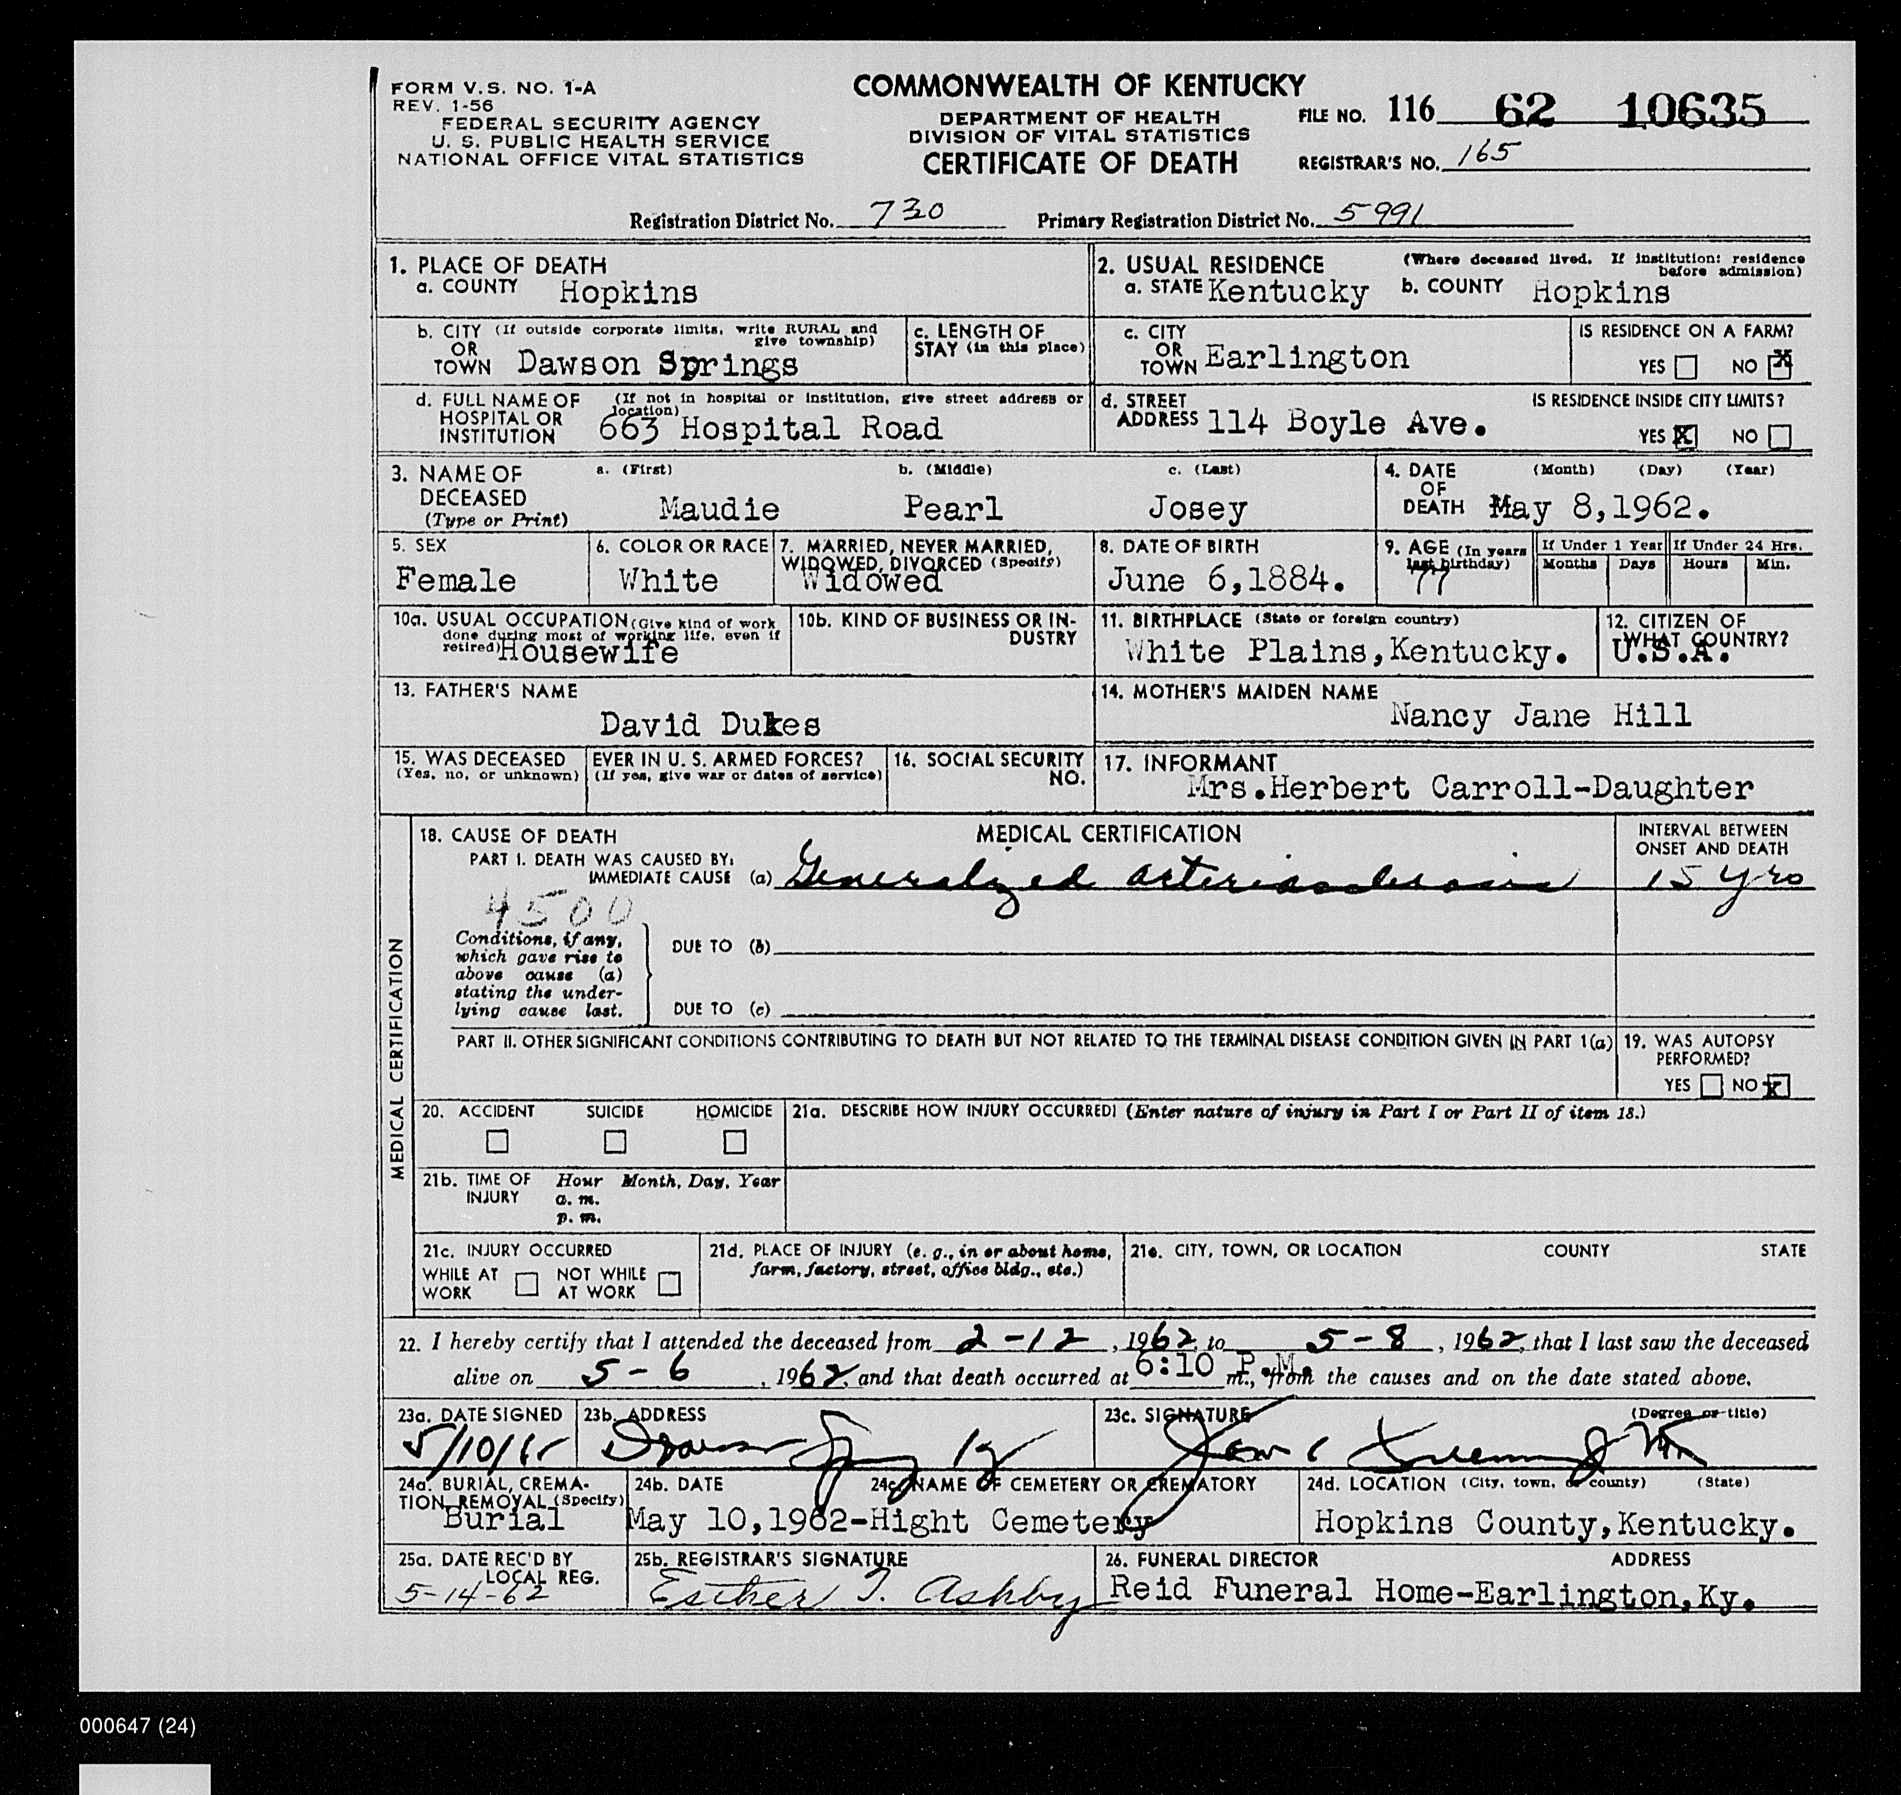 FORM V.S. NO. 1-A
REV. 1-56
FEDERAL SECURITY AGENCY
U. S. PUBLIC HEALTH SERVICE
NATIONAL OFFICE VITAL STATISTICS
COMMONWEALTH OF KENTUCKY
DEPARTMENT OF HEALTH
DIVISION OF VITAL STATISTICS
CERTIFICATE OF DEATH
FILE NO. 116 62 10635
REGISTRAR'S NO. 165
Registration District No. 730 Primary Registration District No. 5991
1. PLACE OF DEATH
a. COUNTY Hopkins
2. USUAL RESIDENCE (Where deceased lived. If institution: residence before admission)
a. STATE Kentucky b. COUNTY Hopkins
b. CITY (If outside corporate limits, write RURAL and give township)
OR
TOWN Dawson Springs
c. LENGTH OF
STAY (in this place)
c. CITY
OR
TOWN Earlington
IS RESIDENCE ON A FARM?
YES NO X
d. FULL NAME OF (If not in hospital or institution, give street address or location)
HOSPITAL OR
INSTITUTION 663 Hospital Road
d. STREET
ADDRESS 114 Boyle Ave.
IS RESIDENCE INSIDE CITY LIMITS?
YES X NO
3. NAME OF
DECEASED
(Type or Print)
a. (First) b. (Middle) c. (Last)
Maudie Pearl Josey
4. DATE (Month) (Day) (Year)
OF
DEATH May 8,1962.
5. SEX
Female
6. COLOR OR RACE
White
7. MARRIED, NEVER MARRIED,
WIDOWED, DIVORCED (Specify)
Widowed
8. DATE OF BIRTH
June 6,1884.
9. AGE (In years
last birthday)
77
If Under 1 Year If Under 24 Hrs.
Months Days Hours Min.
10a. USUAL OCCUPATION (Give kind of work
done during most of working life, even if
retired) Housewife
10b. KIND OF BUSINESS OR IN-
DUSTRY
11. BIRTHPLACE (State or foreign country)
White Plains,Kentucky.
12. CITIZEN OF
WHAT COUNTRY?
U.S.A.
13. FATHER'S NAME
David Dukes
14. MOTHER'S MAIDEN NAME
Nancy Jane Hill
15. WAS DECEASED EVER IN U. S. ARMED FORCES?
(Yes, no, or unknown) (If yes, give war or dates of service)
16. SOCIAL SECURITY
NO.
17. INFORMANT
Mrs.Herbert Carroll-Daughter
MEDICAL CERTIFICATION
18. CAUSE OF DEATH
MEDICAL CERTIFICATION
INTERVAL BETWEEN
ONSET AND DEATH
PART I. DEATH WAS CAUSED BY:
IMMEDIATE CAUSE (a) Generalized arteriosclerosis 15 yrs
4500
Conditions, if any,
which gave rise to
above cause (a)
stating the under-
lying cause last.
DUE TO (b)
DUE TO (c)
PART II. OTHER SIGNIFICANT CONDITIONS CONTRIBUTING TO DEATH BUT NOT RELATED TO THE TERMINAL DISEASE CONDITION GIVEN IN PART 1(a)
19. WAS AUTOPSY
PERFORMED?
YES NO X
20. ACCIDENT SUICIDE HOMICIDE
21a. DESCRIBE HOW INJURY OCCURRED: (Enter nature of injury in Part I or Part II of item 18.)
21b. TIME OF Hour Month, Day, Year
INJURY a. m.
p. m.
21c. INJURY OCCURRED
WHILE AT NOT WHILE
WORK AT WORK
21d. PLACE OF INJURY (e. g., in or about home,
farm, factory, street, office bldg., etc.)
21e. CITY, TOWN, OR LOCATION COUNTY STATE
22. I hereby certify that I attended the deceased from 2-12, 1962, to 5-8, 1962, that I last saw the deceased
alive on 5-6, 1962, and that death occurred at 6:10 P.M. m., from the causes and on the date stated above.
23a. DATE SIGNED
23b. ADDRESS
Dawson Spring Ky
23c. SIGNATURE (Degree or title)
24a. BURIAL, CREMA-
TION, REMOVAL (Specify)
Burial
24b. DATE 24c. NAME OF CEMETERY OR CREMATORY
May 10,1962-Hight Cemetery
24d. LOCATION (City, town, or county) (State)
Hopkins County,Kentucky.
25a. DATE REC'D BY
LOCAL REG.
5-14-62
25b. REGISTRAR'S SIGNATURE
Esther T. Ashby
26. FUNERAL DIRECTOR ADDRESS
Reid Funeral Home-Earlington,Ky.
000647 (24)